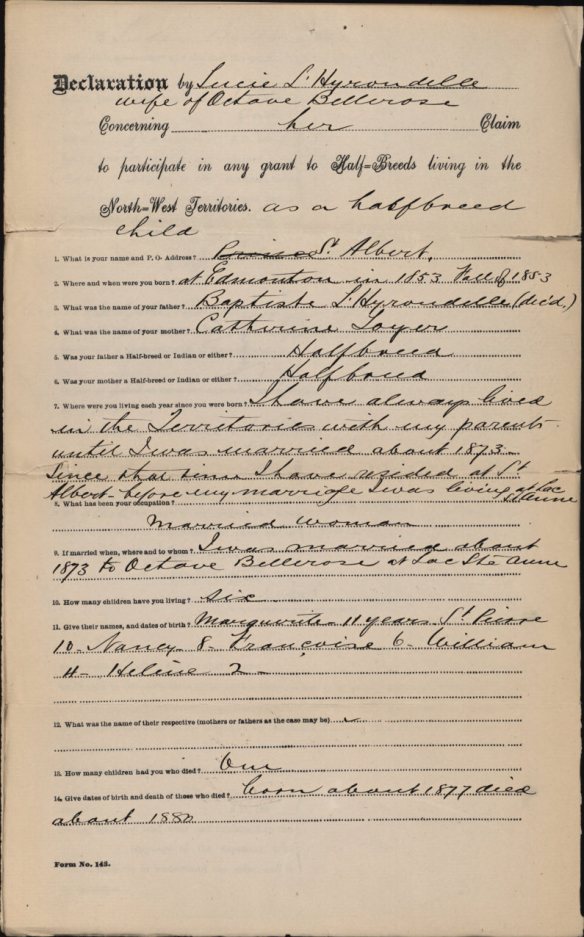 Declaration by Lucie L'Hyrondelle
wife of Octave Bellerose
Concerning her Claim
to participate in any grant to Half=Breeds living in the
North=West Territories. as a halfbreed
child
1. What is your name and P. O. Address? St Albert.
2. Where and when were you born? at Edmonton in 1853 Fall of 1853
3. What was the name of your father? Baptiste L'Hyrondelle (dec'd.)
4. What was the name of your mother? Catherine Loyer
5. Was your father a Half-breed or Indian or either? Halfbreed
6. Was your mother a Half-breed or Indian or either? Halfbreed
7. Where were you living each year since you were born? I have always lived
in the Territories with my parents
until I was married about 1873
Since that time I have resided at St
Albert - before my marriage I was living at Lac
St Anne
8. What has been your occupation?
Married woman
9. If married when, where and to whom? I was married about
1873 to Octave Bellerose at Lac Ste Anne
10. How many children have you living? six
11. Give their names, and dates of birth? Marguerite 11 years St Pierre
10 - Nancy 8 - Françoise 6 - William
4 - Helène 2 -
12. What was the name of their respective (mothers or fathers as the case may be)
13. How many children had you who died? One
14. Give dates of birth and death of those who died? born about 1877 died
about 1880
Form No. 143.